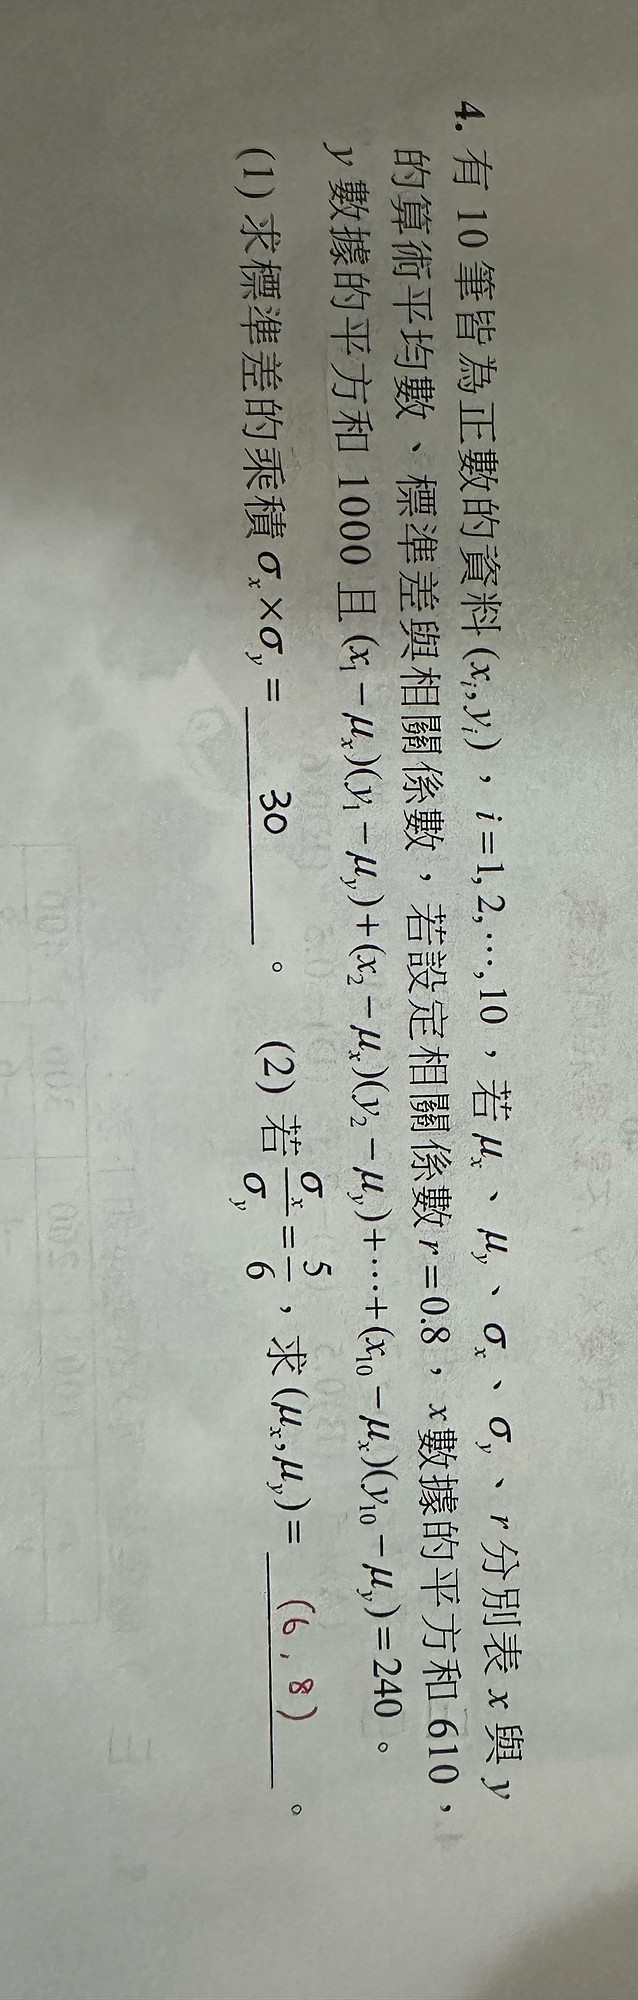 4. 有 10 筆皆為正數的資料 (xᵢ, yᵢ)，i=1, 2, …, 10，若 μₓ、μᵧ、σₓ、σᵧ、r 分別表 x 與 y
的算術平均數、標準差與相關係數，若設定相關係數 r=0.8，x 數據的平方和 610，
y 數據的平方和 1000 且 (x₁−μₓ)(y₁−μᵧ)+(x₂−μₓ)(y₂−μᵧ)+…+(x₁₀−μₓ)(y₁₀−μᵧ)=240。
(1) 求標準差的乘積 σₓ×σᵧ= 30 。 (2) 若 σₓ/σᵧ=5/6，求 (μₓ, μᵧ)= (6, 8) 。